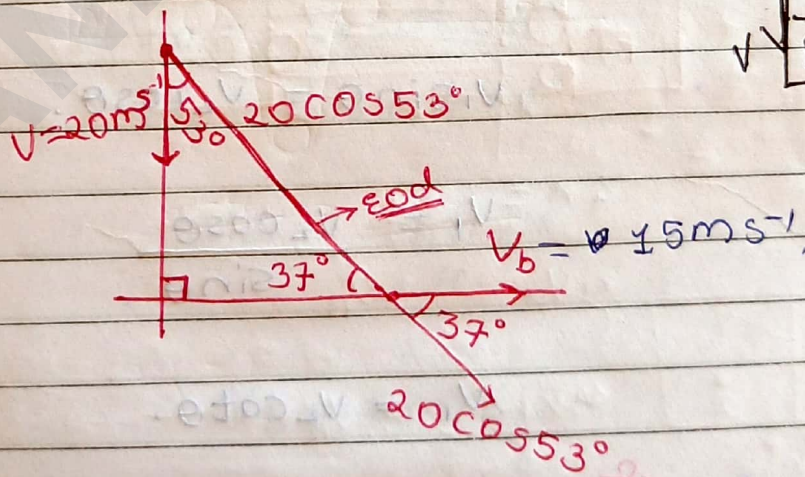 V=20ms⁻¹
53°
20cos53°
rod
V_b = 15ms⁻¹
37°
37°
20cos53°